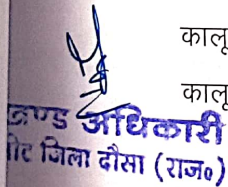 कालू
कालू
अधिकारी
जिला दौसा (राज०)